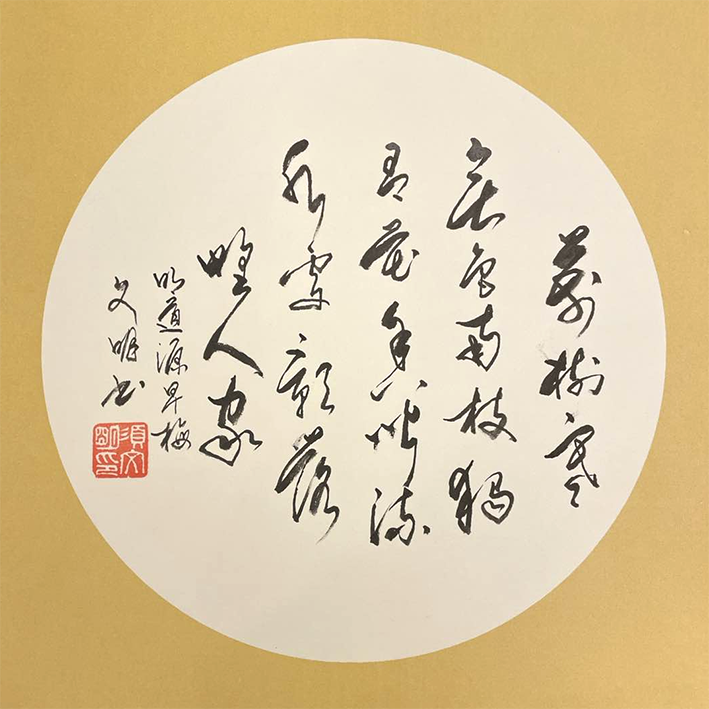 萬樹寒
無色南枝獨
有花香聞流
水處影落
野人家
明道源早梅
文明书
須文明印